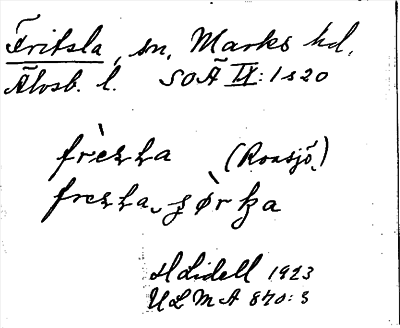 Fritsla, sn, Marks hd,
Älvsb. l. SOÄ IX: 1 s 20
frèsla (Roasjö)
fresla‿şø̀rka
H Lidell 1923
ULMA 870:3